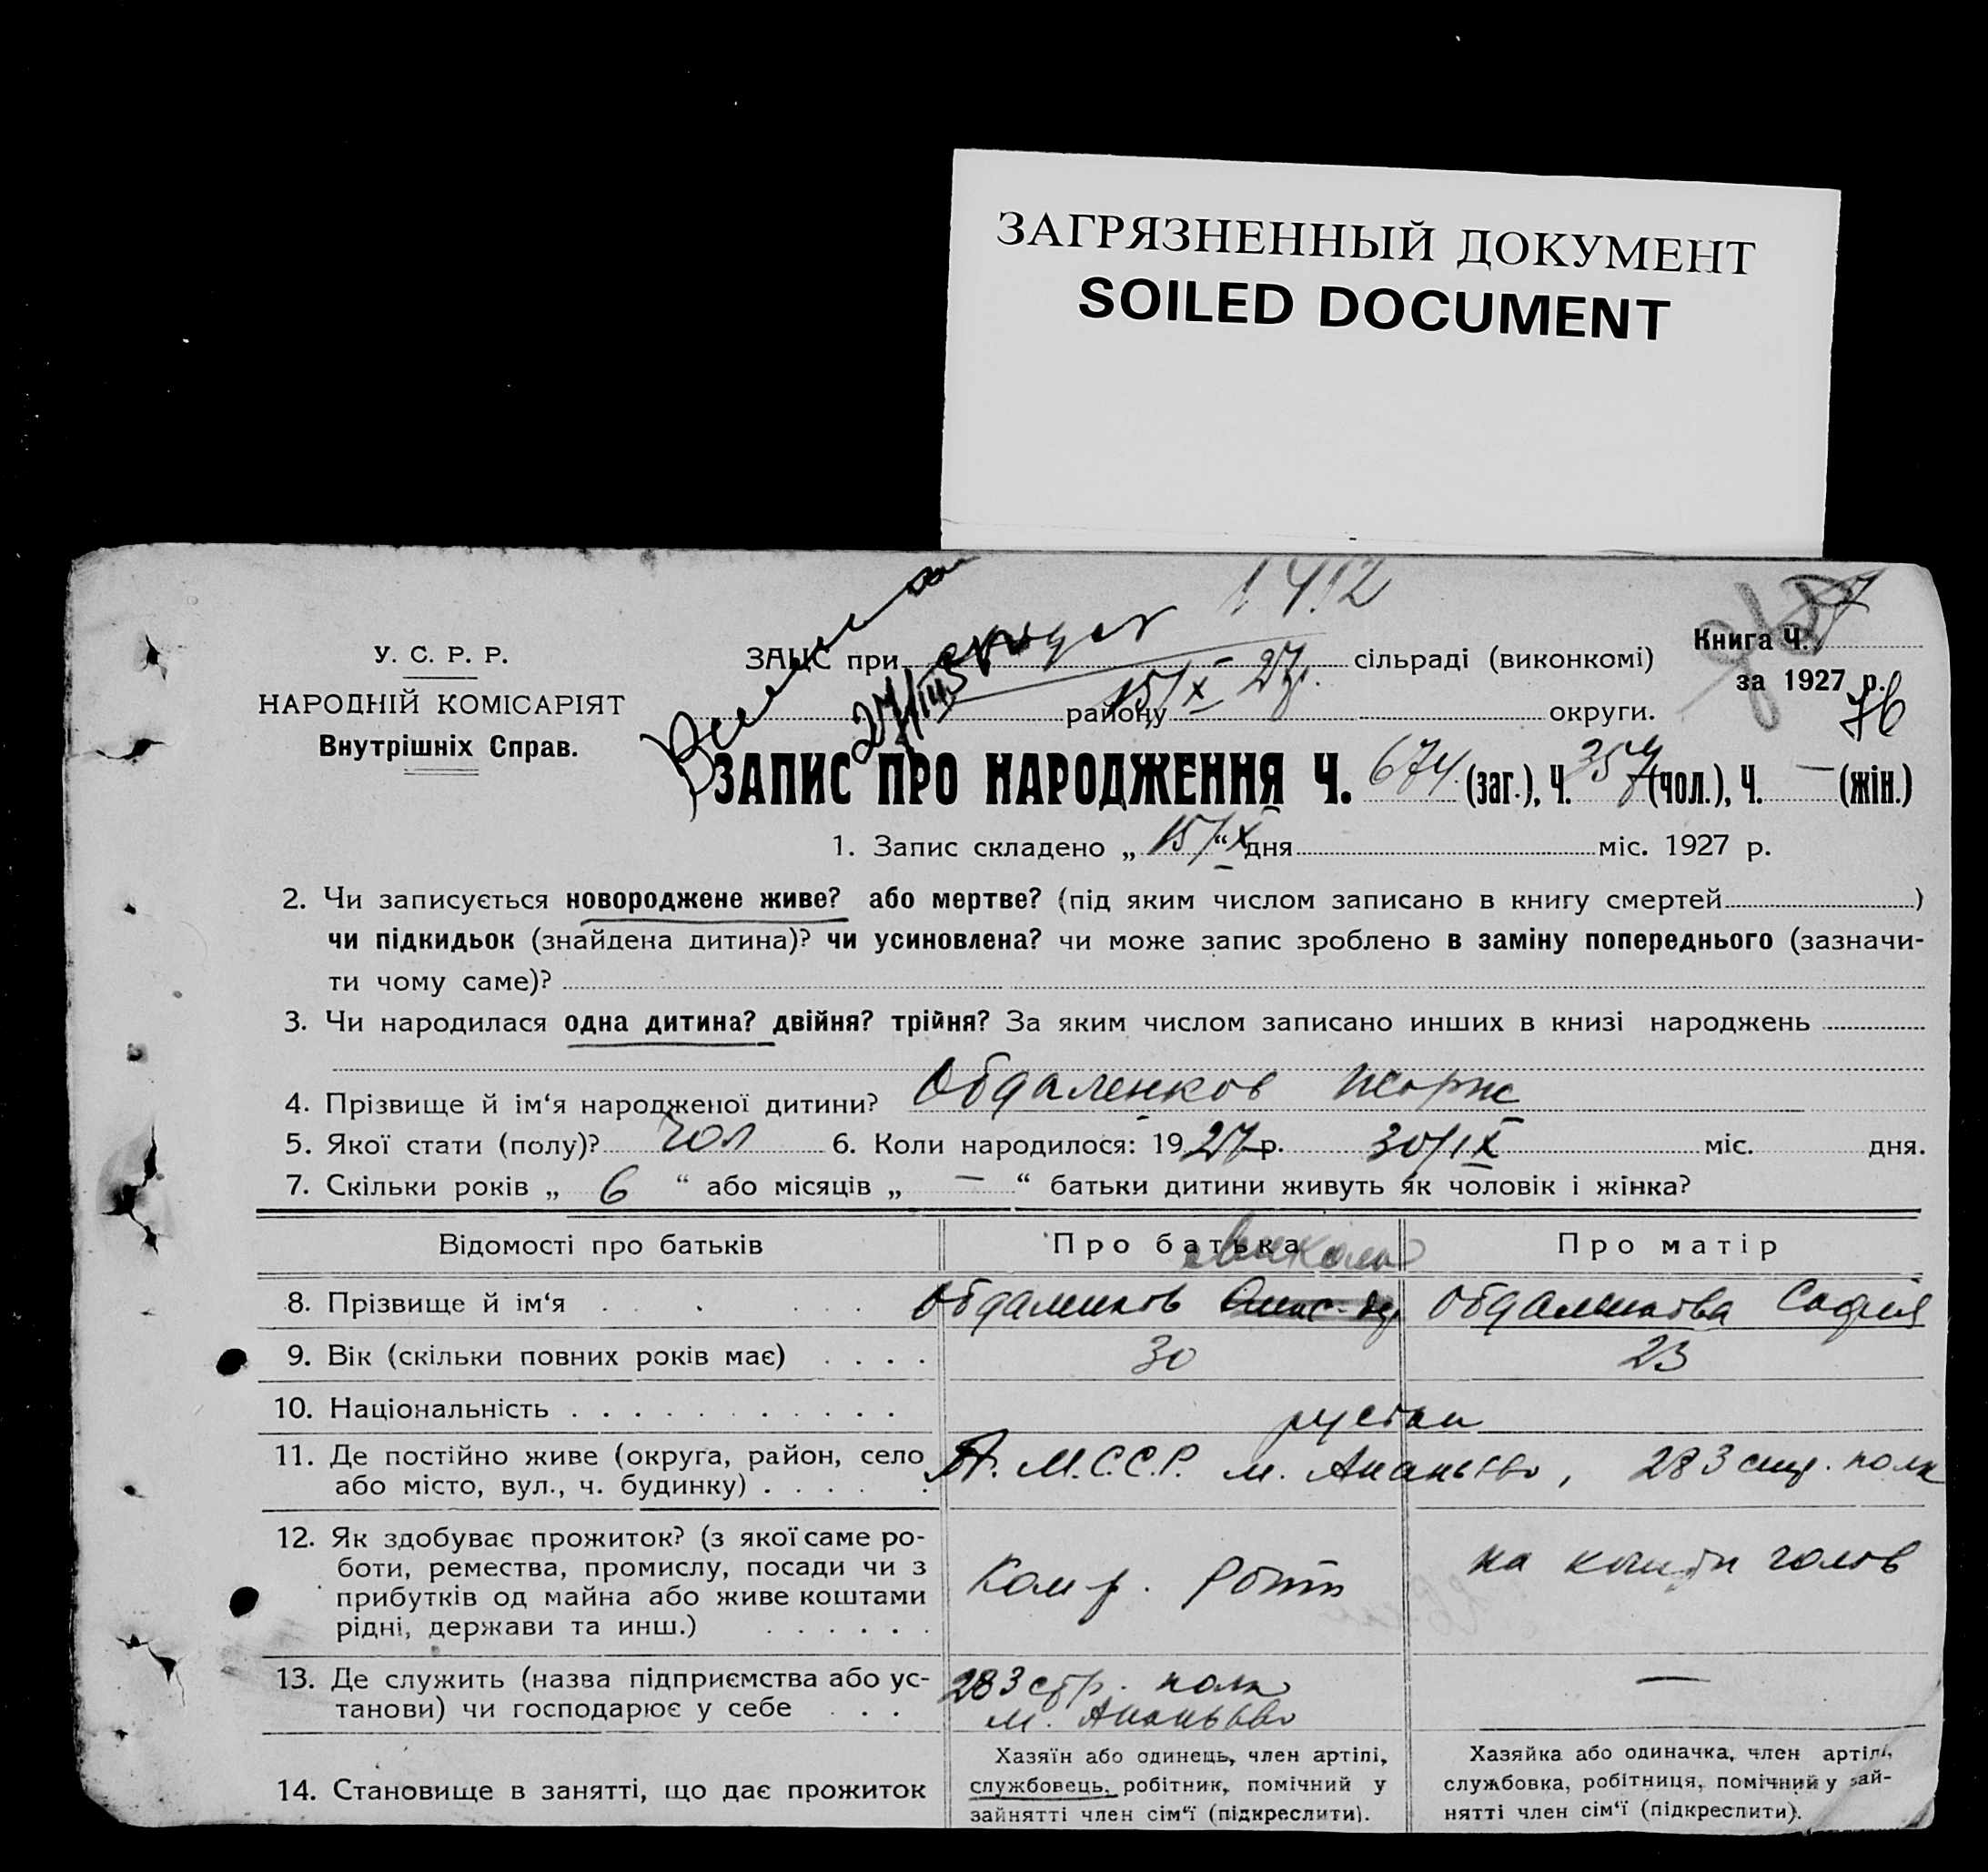 ЗАГРЯЗНЕННЫЙ ДОКУМЕНТ
SOILED DOCUMENT
1412
У. С. Р. Р.
НАРОДНІЙ КОМІСАРІЯТ
Внутрішніх Справ.
ЗАЦС при сільраді (виконкомі)
15/X 27р.
району округи.
Книга Ч.
за 1927 р.
76
27/III
ЗАПИС ПРО НАРОДЖЕННЯ Ч. 674. (заг.), Ч. 357 (чол.), Ч. — (жін.)
1. Запис складено „ 15/X “ дня міс. 1927 р.
2. Чи записується новороджене живе? або мертве? (під яким числом записано в книгу смертей )
чи підкидьок (знайдена дитина)? чи усиновлена? чи може запис зроблено в заміну попереднього (зазначи-
ти чому саме)?
3. Чи народилася одна дитина? двійня? трійня? За яким числом записано инших в книзі народжень
4. Прізвище й ім‘я народженої дитини? Обдаленков Жорж
5. Якої стати (полу)? чол 6. Коли народилося: 1927 р. 30/IX міс. дня.
7. Скільки років „ 6 “ або місяців „ — “ батьки дитини живуть як чоловік і жінка?
Відомості про батьків Про батька Про матір
Микола
8. Прізвище й ім‘я Обдаленков Обдаленкова Софія
9. Вік (скільки повних років має) 30 23
10. Національність
11. Де постійно живе (округа, район, село
або місто, вул., ч. будинку) А.М.С.С.Р. м. Ананьево, 283 полк
12. Як здобуває прожиток? (з якої саме ро-
боти, ремества, промислу, посади чи з
прибутків од майна або живе коштами
рідні, держави та инш.)
Ком р. роти на кошти голов
13. Де служить (назва підприємства або ус-
танови) чи господарює у себе
283 стр. полк —
м. Ананьево
14. Становище в занятті, що дає прожиток
Хазяїн або одинець, член артілі,
службовець, робітник, помічний у
зайнятті член сім‘ї (підкреслити).
Хазяйка або одиначка, член артілі,
службовка, робітниця, помічний у зай-
нятті член сім‘ї (підкреслити).